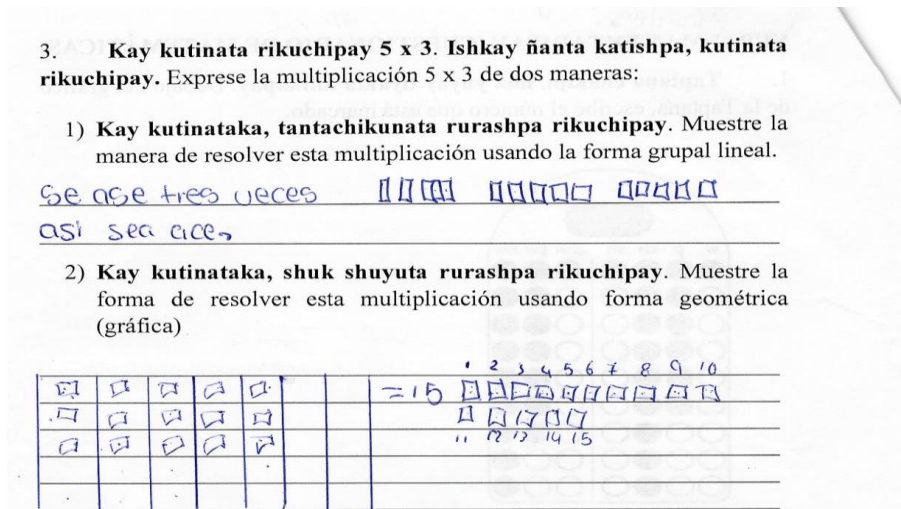 3. Kay kutinata rikuchipay 5 x 3. Ishkay ñanta katishpa, kutinata
rikuchipay. Exprese la multiplicación 5 x 3 de dos maneras:
1) Kay kutinataka, tantachikunata rurashpa rikuchipay. Muestre la
manera de resolver esta multiplicación usando la forma grupal lineal.
Se ase tres veces
asi sea
2) Kay kutinataka, shuk shuyuta rurashpa rikuchipay. Muestre la
forma de resolver esta multiplicación usando forma geométrica
(gráfica)
1 2 3 4 5 6 7 8 9 10
=15
11 12 13 14 15